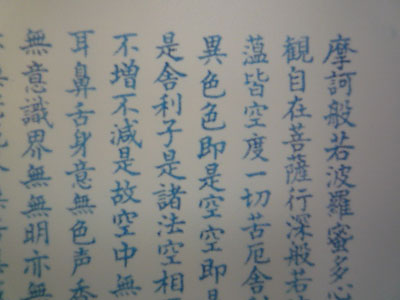 摩訶般若波羅蜜多心
観自在菩薩行深般若
蘊皆空度一切苦厄舎
異色色即是空空即
是舎利子是諸法空相
不増不減是故空中無
耳鼻舌身意無色声香
無意識界無無明亦無